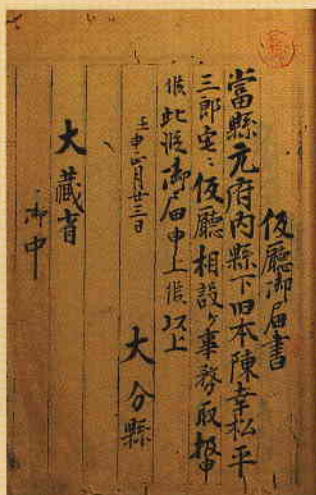 仮廳御届書
當縣元府内縣下旧本陳幸松平
三郎宅ニ仮廳相設ケ事務取扱申
候此段御届申上候以上
壬申正月廿三日
大分縣
大藏省
御中